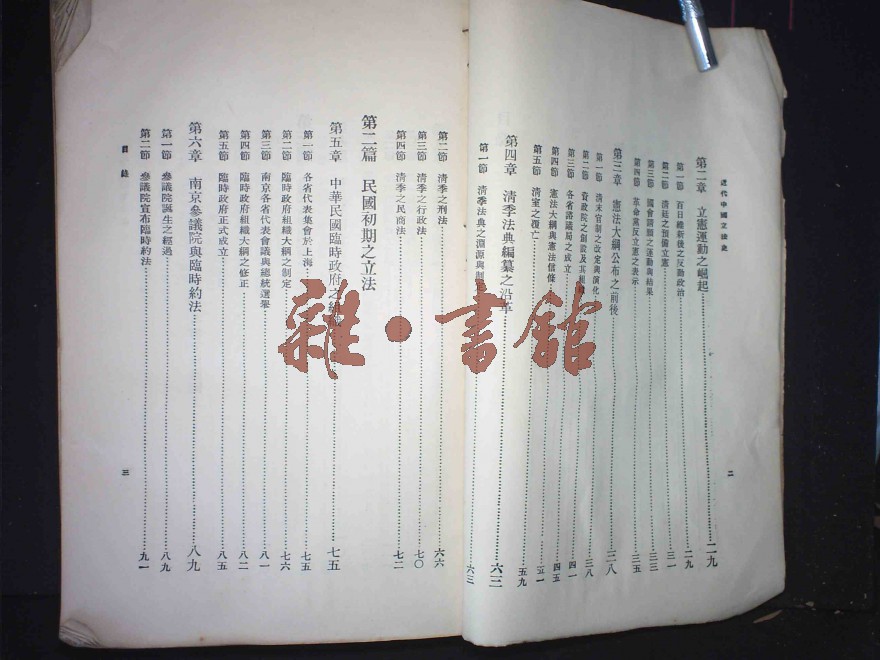 近代中國立法史
二
第二章 立憲運動之崛起 二九
第一節 百日維新後之反動政治 二九
第二節 清廷之預備立憲 三一
第三節 國會請願之運動與結果 三三
第四節 革命黨反立憲之表示 三五
第三章 憲法大綱公布之前後 三八
第一節 清末官制之改定與演化 三八
第二節 資政院之創設及其組織 四一
第三節 各省諮議局之成立 四五
第四節 憲法大綱與憲法信條 五一
第五節 清室之覆亡 五九
第四章 清季法典編纂之沿革 六三
第一節 清季法典之淵源與 六三
第二節 清季之刑法 六六
第三節 清季之行政法 七〇
第四節 清季之民商法 七二
第二篇 民國初期之立法
第五章 中華民國臨時政府之 七五
第一節 各省代表集會於上海 七五
第二節 臨時政府組織大綱之制定 七六
第三節 南京各省代表會議與總統選舉 八一
第四節 臨時政府組織大綱之修正 八二
第五節 臨時政府正式成立 八五
第六章 南京參議院與臨時約法 八九
第一節 參議院誕生之經過 八九
第二節 參議院宣布臨時約法 九一
目錄
三
雜·書館